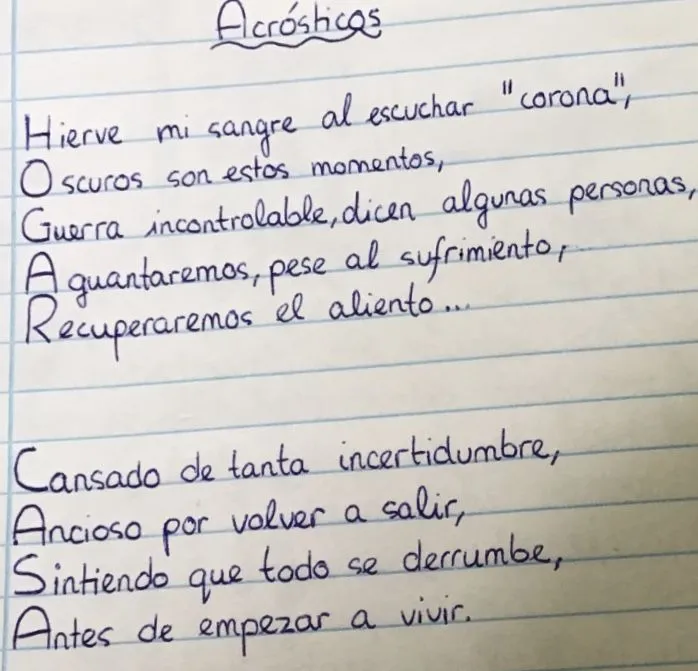 Acrósticos
Hierve mi sangre al escuchar "corona",
Oscuros son estos momentos,
Guerra incontrolable, dicen algunas personas,
Aguantaremos, pese al sufrimiento,
Recuperaremos el aliento...
Cansado de tanta incertidumbre,
Ancioso por volver a salir,
Sintiendo que todo se derrumbe,
Antes de empezar a vivir.